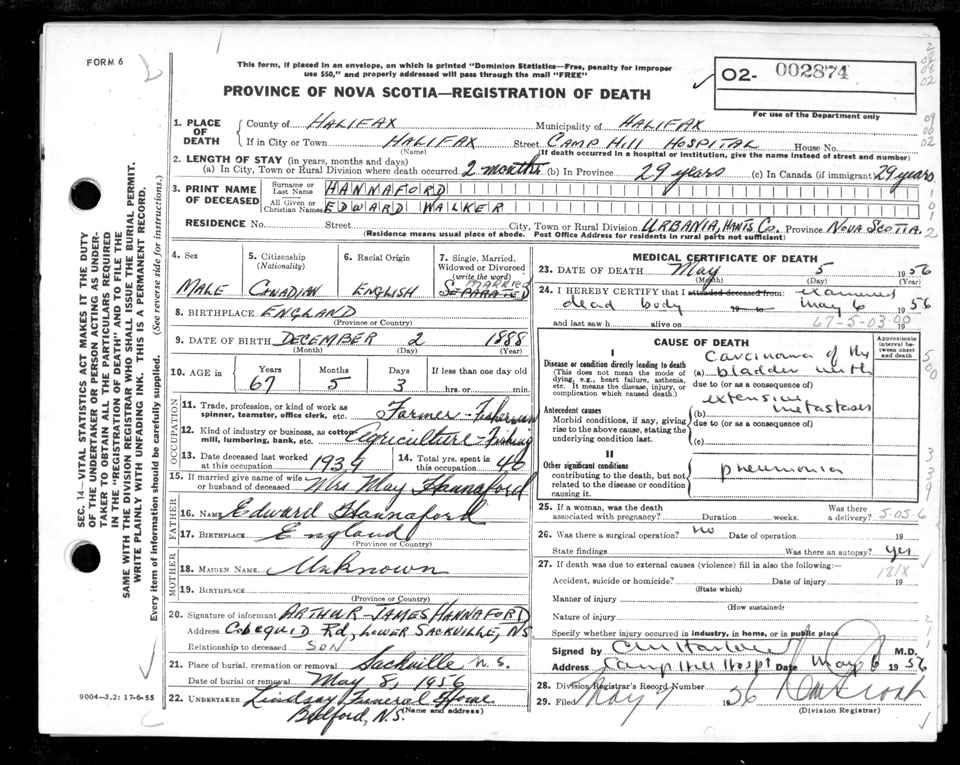 FORM 6
This form, if placed in an envelope, on which is printed "Dominion Statistics—Free, penalty for improper
use $50," and properly addressed will pass through the mail "FREE"
PROVINCE OF NOVA SCOTIA—REGISTRATION OF DEATH
O2- 002874
For use of the Department only
1. PLACE OF DEATH County of HALIFAX Municipality of HALIFAX
If in City or Town HALIFAX Street CAMP HILL HOSPITAL House No.
(Name) (If death occurred in a hospital or institution, give the name instead of street and number)
2. LENGTH OF STAY (in years, months and days)
(a) In City, Town or Rural Division where death occurred 2 months (b) In Province 29 years (c) In Canada (if immigrant) 29 years
3. PRINT NAME OF DECEASED Surname or Last Name HANNAFORD
All Given or Christian Names EDWARD WALKER
RESIDENCE No. Street City, Town or Rural Division URBANIA, HANTS Co. Province NOVA SCOTIA
(Residence means usual place of abode. Post Office Address for residents in rural parts not sufficient)
4. Sex MALE
5. Citizenship (Nationality) CANADIAN
6. Racial Origin ENGLISH
7. Single, Married, Widowed or Divorced (write the word) MARRIED SEPARATED
8. BIRTHPLACE ENGLAND
(Province or Country)
9. DATE OF BIRTH DECEMBER 2 1888
(Month) (Day) (Year)
10. AGE in Years Months Days If less than one day old
67 5 3 hrs. or min.
OCCUPATION
11. Trade, profession, or kind of work as spinner, teamster, office clerk, etc. Farmer - Fisherman
12. Kind of industry or business, as cotton mill, lumbering, bank, etc. Agriculture - Fishing
13. Date deceased last worked at this occupation 1939
14. Total yrs. spent in this occupation 40
15. If married give name of wife or husband of deceased Mrs May Hannaford
FATHER
16. NAME Edward Hannaford
17. BIRTHPLACE England
(Province or Country)
MOTHER
18. MAIDEN NAME Unknown
19. BIRTHPLACE
(Province or Country)
20. Signature of informant ARTHUR JAMES HANNAFORD
Address COBEQUID Rd, LOWER SACKVILLE, NS
Relationship to deceased SON
21. Place of burial, cremation or removal Sackville N.S.
Date of burial or removal May 8, 1956
22. UNDERTAKER Lindsay Funeral Home
Bedford, N.S. (Name and address)
MEDICAL CERTIFICATE OF DEATH
23. DATE OF DEATH May 5 1956
(Month) (Day) (Year)
24. I HEREBY CERTIFY that I attended deceased from: examined
dead body 19 to May 6 1956
and last saw h alive on 19
67-5-03-00
CAUSE OF DEATH
Approximate interval between onset and death
I
Disease or condition directly leading to death
(This does not mean the mode of dying, e.g., heart failure, asthenia, etc. It means the disease, injury, or complication which caused death.)
(a) Carcinoma of the bladder with
due to (or as a consequence of)
Antecedent causes
Morbid conditions, if any, giving rise to the above cause, stating the underlying condition last.
(b) extensive metastases
due to (or as a consequence of)
(c)
II
Other significant conditions
contributing to the death, but not related to the disease or condition causing it.
pneumonia
25. If a woman, was the death associated with pregnancy? Duration weeks. Was there a delivery?
5-05-6
26. Was there a surgical operation? no Date of operation 19
State findings Was there an autopsy? yes
27. If death was due to external causes (violence) fill in also the following:—
181X
Accident, suicide or homicide? Date of injury 19
(State which)
Manner of injury
(How sustained)
Nature of injury
Specify whether injury occurred in industry, in home, or in public place
Signed by M.D.
Address Camp Hill Hosp Date May 6 1956
28. Division Registrar's Record Number
29. Filed May 7 1956
(Division Registrar)
SEC. 14—VITAL STATISTICS ACT MAKES IT THE DUTY
OF THE UNDERTAKER OR PERSON ACTING AS UNDER-
TAKER TO OBTAIN ALL THE PARTICULARS REQUIRED
IN THE "REGISTRATION OF DEATH" AND TO FILE THE
SAME WITH THE DIVISION REGISTRAR WHO SHALL ISSUE THE BURIAL PERMIT.
WRITE PLAINLY WITH UNFADING INK. THIS IS A PERMANENT RECORD.
Every item of information should be carefully supplied. (See reverse side for instructions.)
9004—3.2: 17-6-55